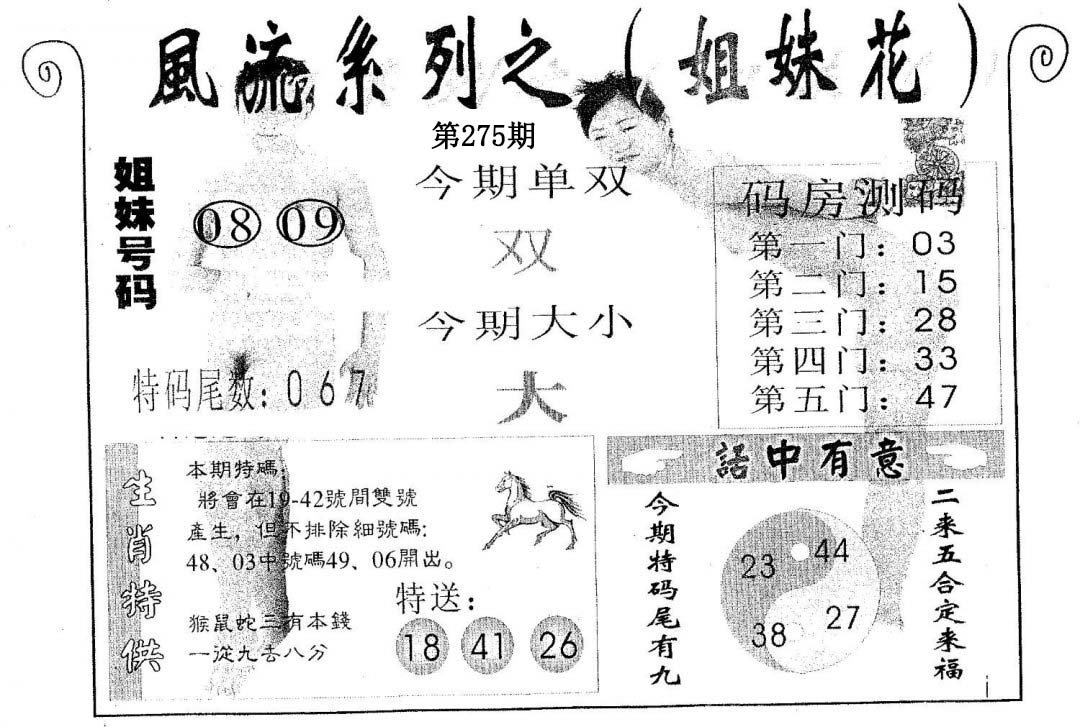 風流系列之（姐妹花）
第275期
姐妹号码
08 09
特码尾数：0 6 7
今期单双
双
今期大小
大
码房测码
第一门：03
第二门：15
第三门：28
第四门：33
第五门：47
生肖特供
本期特碼：
將會在19-42號間雙號
產生，但不排除細號碼：
48、03中號碼49、06開出。
猴鼠蛇三有本錢
一從九去八分
特送：
18 41 26
話中有意
今期特码尾有九
23 44
38 27
二来五合定来福